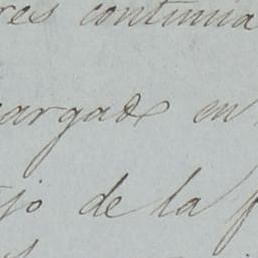 res continua
cargado en
jo de la